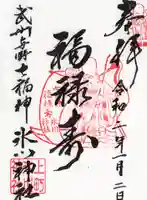 奉拝
令和二年一月二日
福禄寿
武州与野七福神
氷川神社